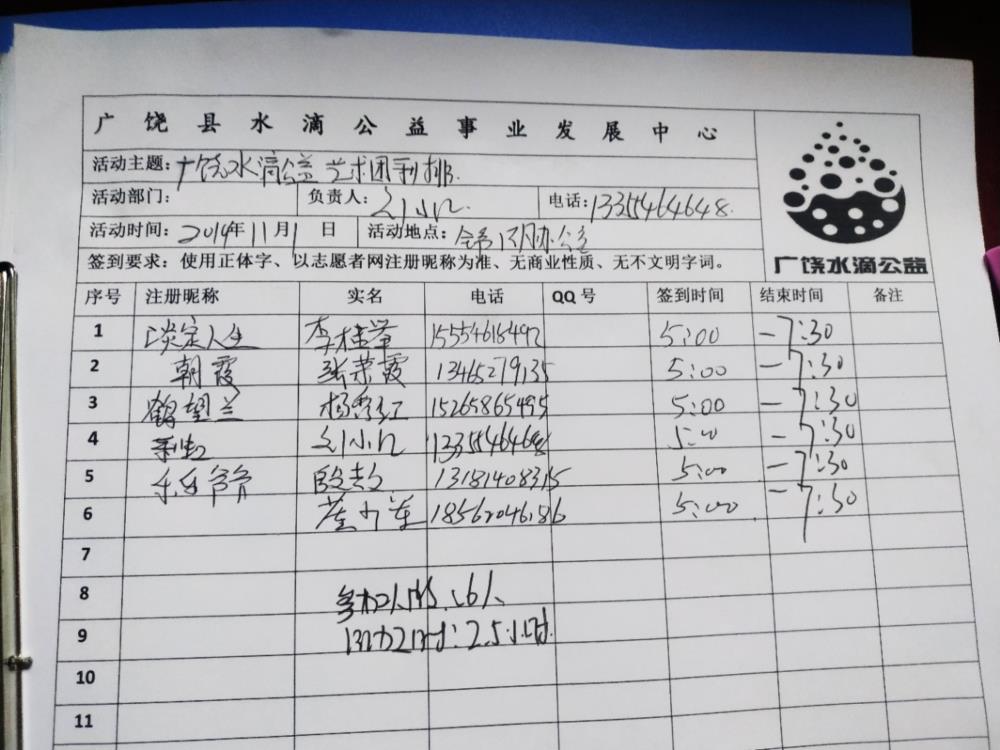 广饶县水滴公益事业发展中心
活动主题: 广饶水滴公益艺术团彩排.
活动部门: 负责人: 刘小儿. 电话: 13355464648.
活动时间: 2019年11月1日 活动地点: 办公
签到要求: 使用正体字、以志愿者网注册昵称为准、无商业性质、无不文明字词。
广饶水滴公益
序号 注册昵称 实名 电话 QQ号 签到时间 结束时间 备注
1 淡定人生 李桂荣 15554616492 5:00 -7:30
2 朝霞 张荣霞 13465279135 5:00 -7:30
3 鹤望兰 杨秀红 15265865495 5:00 -7:30
4 刘小儿 5:00 -7:30
5 乐乐爷爷 13181408315 5:00 -7:30
6 崔 18562046186 5:00 -7:30
7
8 参加人数:6人
9 :2.5小时.
10
11